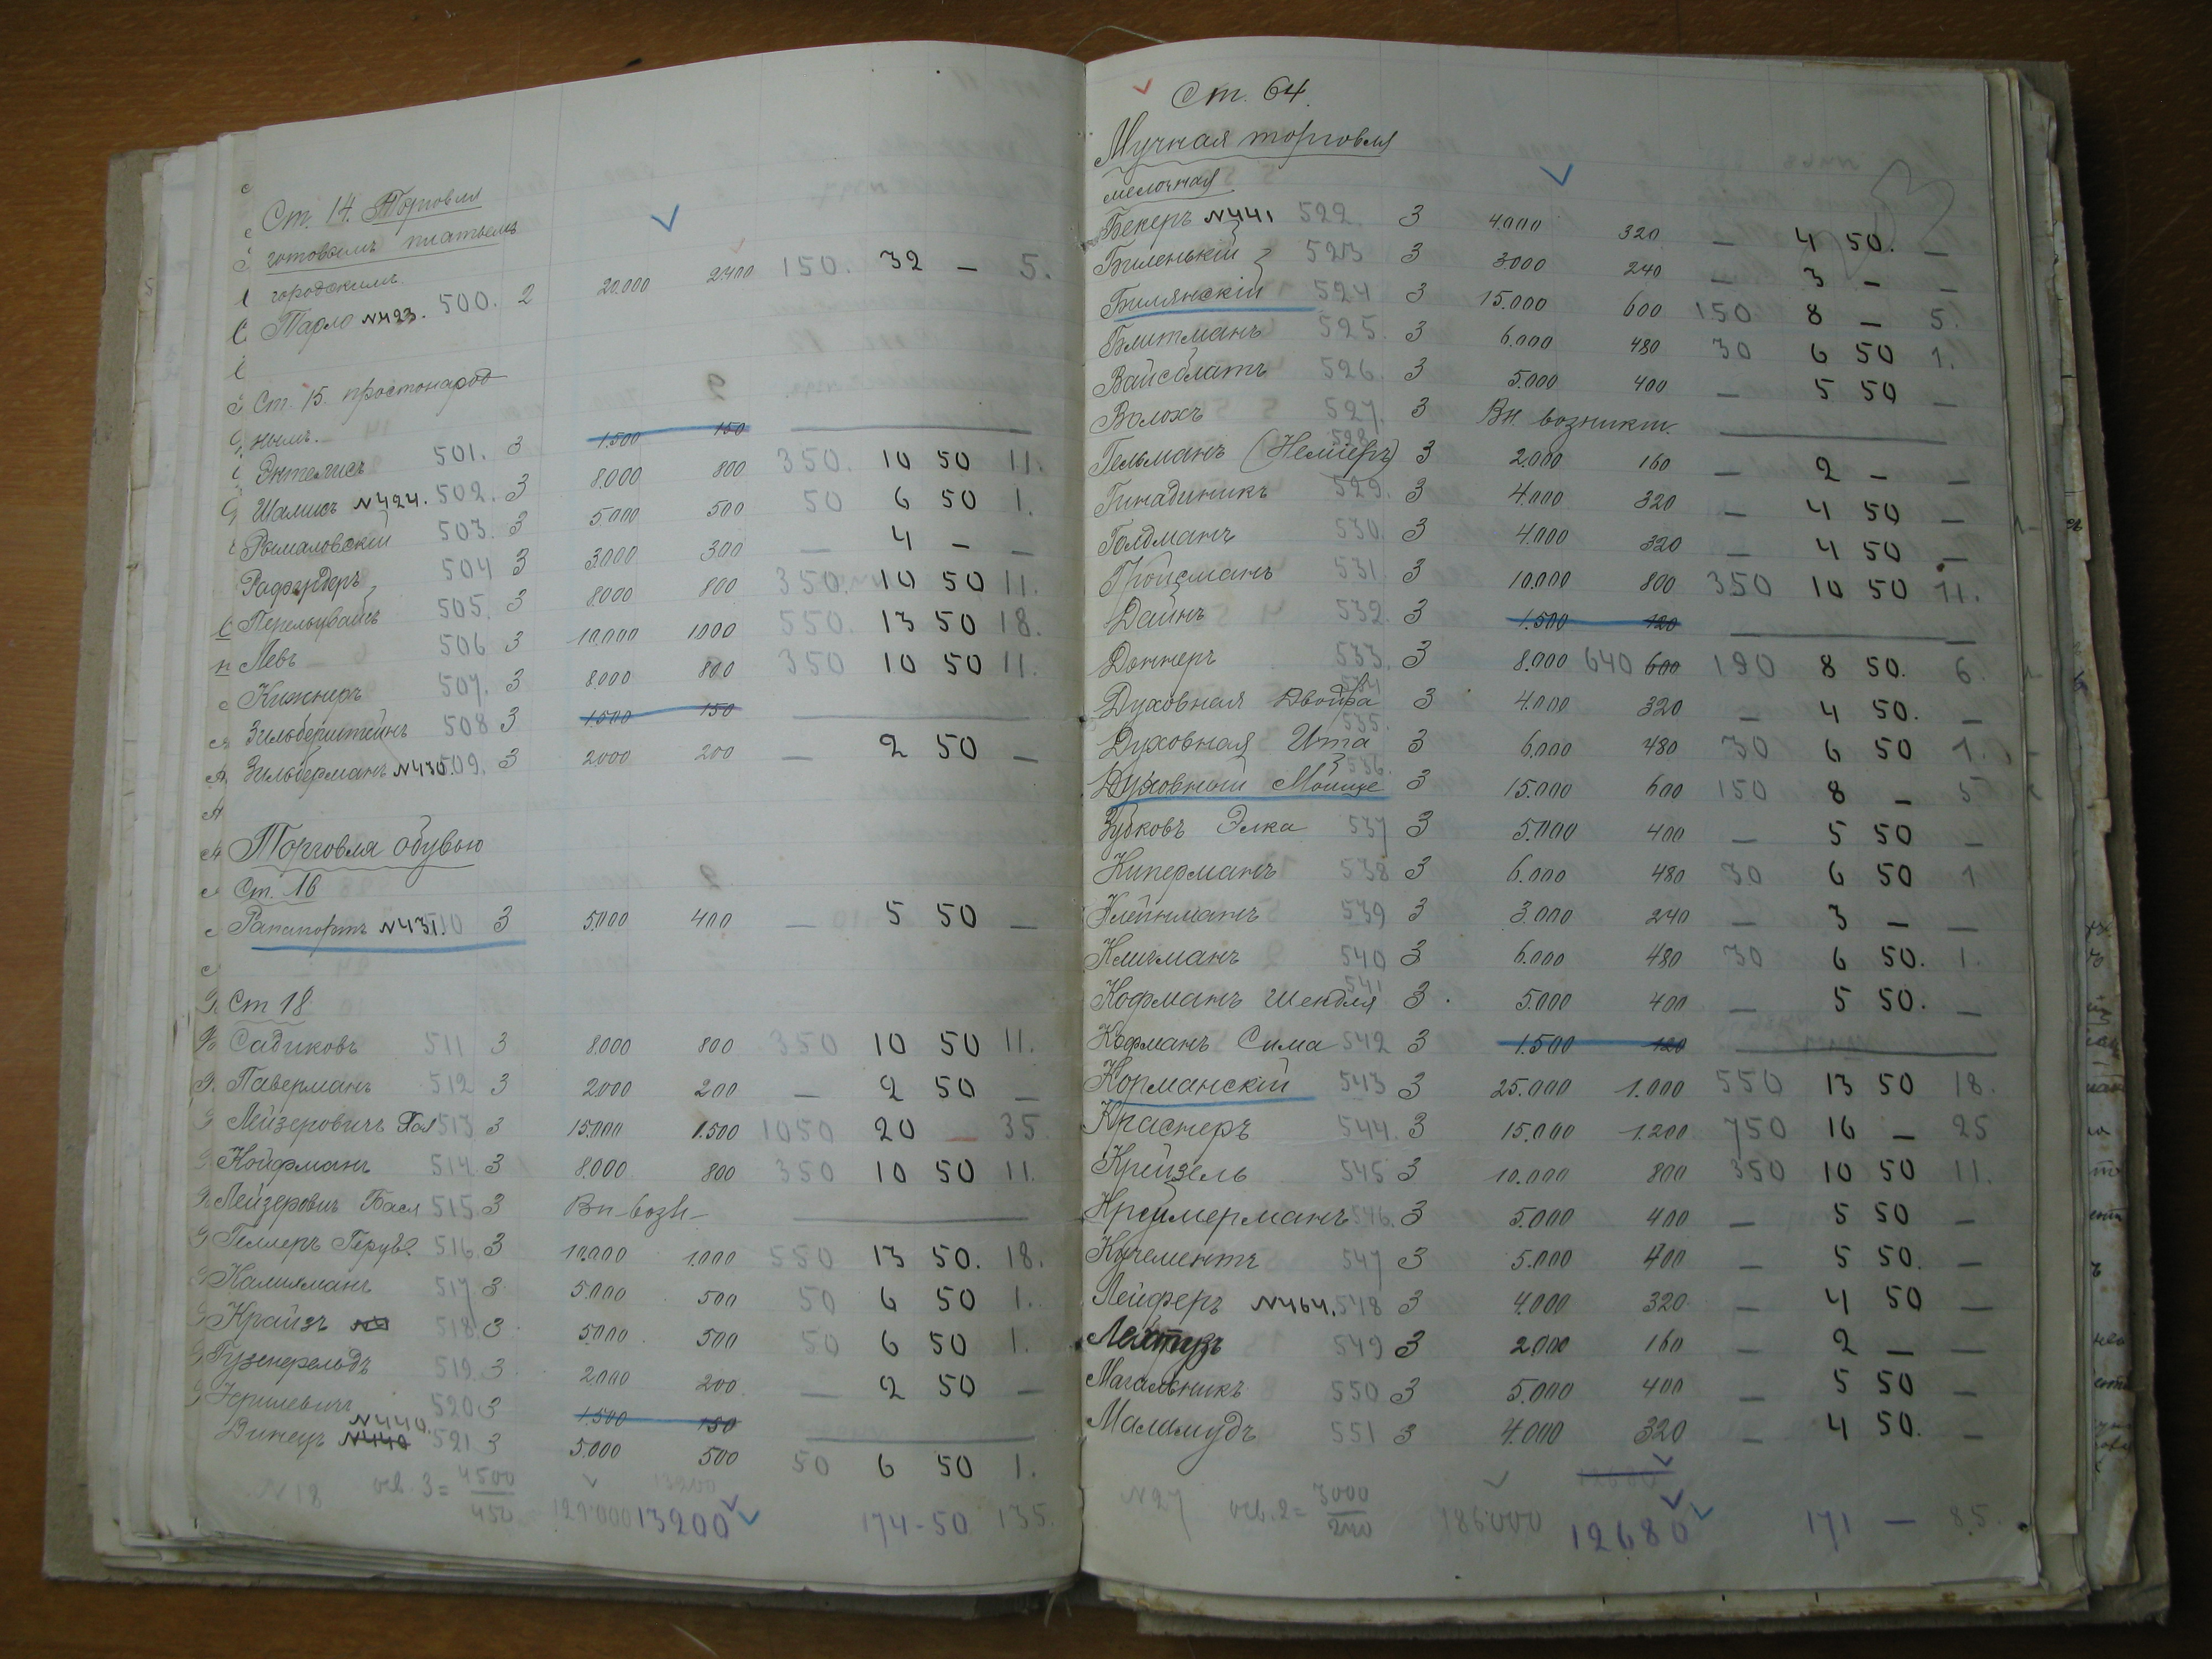 Ст. 14. Торговля
готовымъ платьемъ
городскимъ.
Парло №423. 500. 2 20.000 2400 150. 32 — 5.
Ст. 15. простонарод
нымъ.
501. 3 1.500 150
Шамисъ №424. 502. 3 8.000 800 350. 10 50 11.
Рымаловскій 503. 3 5.000 500 50 6 50 1.
504 3 3.000 300 — 4 — —
Перельцвайгъ 505. 3 8.000 800 350. 10 50 11.
Левъ 506 3 10.000 1.000 550. 13 50 18.
Кижнеръ 507. 3 8.000 800 350 10 50 11.
Зильберштейнъ 508 3 1.500 150
Зильберманъ №430. 509. 3 2.000 200 — 2 50 —
Торговля обувью
Ст. 16
Рапапортъ №431. 510 3 5.000 400 — 5 50 —
Ст 18
Садиковъ 511 3 8.000 800 350 10 50 11.
Паверманъ 512 3 2.000 200 — 2 50 —
Лейзеровичъ Хая 513 3 15.000 1.500 1050 20 — 35
Койфманъ 514. 3 8.000. 800 350 10 50 11.
Лейзеровичъ Бася 515. 3 Вн-возн-
Геллеръ 516. 3 10.000 1.000 550 13 50. 18.
517. 3 5.000 500 50 6 50 1.
Крайзъ 518 3 5.000 500 50 6 50 1.
519. 3 2.000 200 — 2 50 —
520 3 1.500 150
№440.
Динецъ №440 521 3 5.000 500 50 6 50 1.
N 18 осв. 3 = 4500 13200
450 129.000 13200 174-50 135.
Ст. 64.
Мучная торговля
мелочная
Бекеръ №441 522. 3 4.000 320 — 4 50. —
Биленькій 523 3 3.000 240 — 3 — —
Билянскій 524 3 15.000 600 150 8 — 5.
Блитманъ 525. 3 6.000 480 30 6 50 1.
Вайсблатъ 526. 3 5.000 400 — 5 50 —
Волохъ 527. 3 Вн. возникш.
Гельманъ (Немперъ) 528 3 2.000 160 — 2 — —
529. 3 4.000 320 — 4 50 —
Голдманъ 530. 3 4.000 320 — 4 50 —
Гройсманъ 531. 3 10.000 800 350 10 50 11.
Даинъ 532. 3 1.500 120 —
Доннеръ 533. 3 8.000 640 600 190 8 50. 6.
Духовная Двойра 534 3 4.000 320 — 4 50. —
Духовная Ита 535. 3 6.000 480 30 6 50 1.
Духовный Мошце 536. 3 15.000 600 150 8 — 5
Зубковъ Элка 537 3 5.000 400 — 5 50 —
Киперманъ 538 3 6.000 480 30 6 50 1
Клейнманъ 539 3 3.000 240 — 3 — —
Кличманъ 540 3 6.000 480 30 6 50. 1.
Кофманъ Шендля 541 3. 5.000 400 — 5 50. —
Кофманъ Сима 542 3 1.500 120
Корманскій 543 3 25.000 1.000 550 13 50 18.
Краснеръ 544. 3 15.000 1.200 750 16 — 25
Крейзель 545 3 10.000 800 350 10 50 11.
Креймерманъ 546. 3 5.000 400 — 5 50 —
Кучементъ 547 3 5.000 400 — 5 50. —
Лейферъ №464. 548 3 4.000 320 — 4 50 —
549 3 2.000 160 — 2 — —
Магальникъ 550 3 5.000 400 — 5 50 —
Маламудъ 551 3 4.000 320 — 4 50. —
N 27 осв. 2 = 3000 12680
240 186.000 12680 171 — 85.